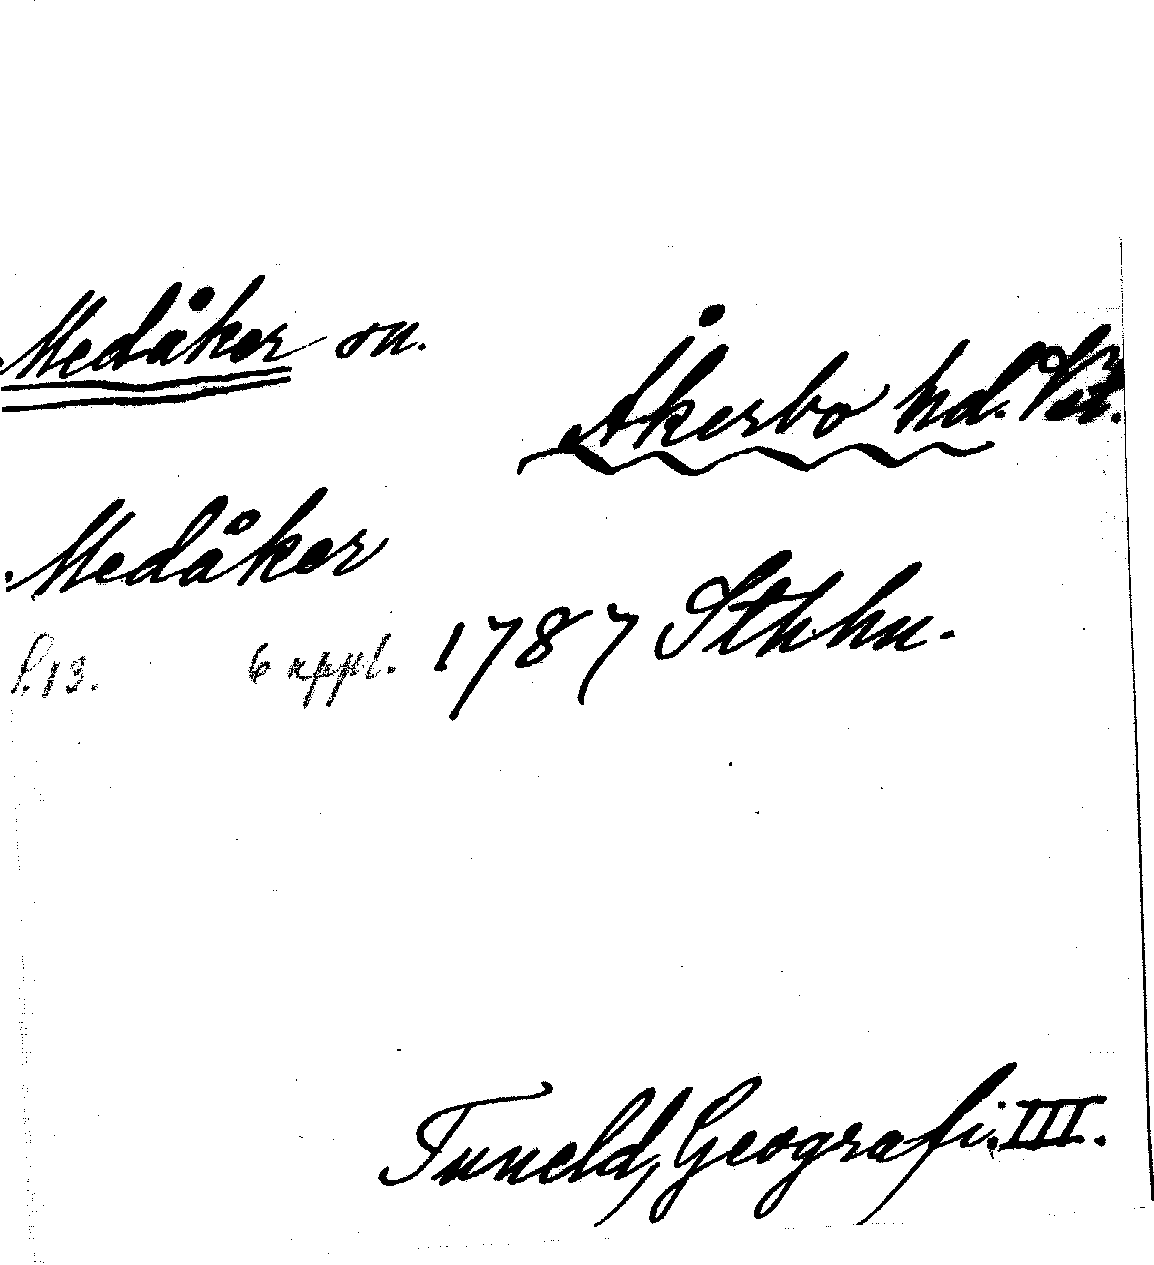 Medåker sn.
Åkerbo hd. Vstm.
Medåker
S.13. 6 uppl. 1787 Sthhn.
Tuneld, Geografi. III.